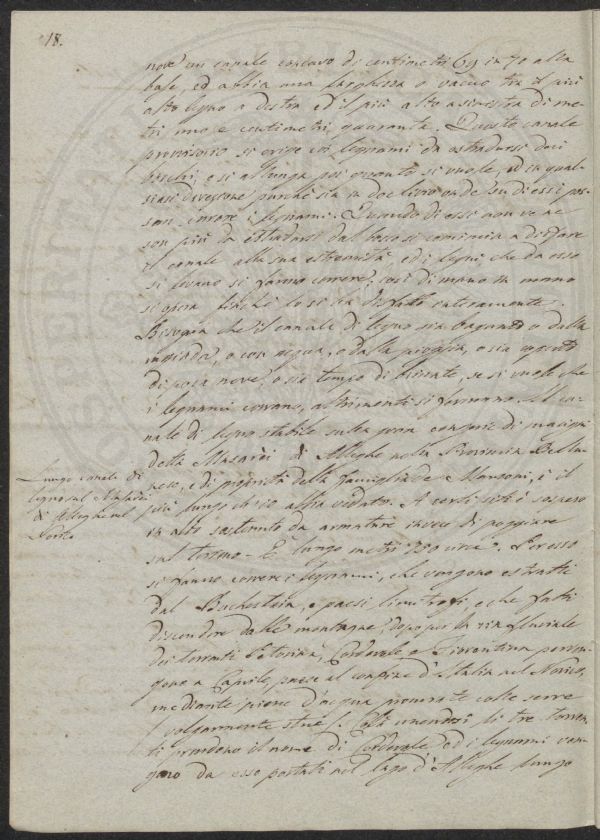 18.
nove un canale concavo di centimetri 69 in 70 alla
base, ed abbia una larghezza o vacuo tra il più
alto legno a destra ed il più alto a sinistra di me-
tri uno e centimetri quaranta. Questo canale
provvisorio si erige coi legnami da estradursi dai
boschi, e si allunga poi quanto si vuole, ed in qual-
siasi direzione purchè sia in declivio onde lun di essi pos-
san correre i legnami. Quando di essi non ve ne
son più da estradursi dal bosco si comincia a disfare
il canale alla sua estremità, ed i legni, che da esso
si levano si fanno correre, così di mano in mano
si opera finchè lo si sia disfatto interamente.
Bisogna che il canale di legno sia bagnato o dalla
rugiada, o con acqua, o dalla pioggia, o sia coperto
di poca neve, o sia tempo di brinate, se si vuole che
i legnami corrano, altrimenti si fermano. Il ca-
nale di legno stabile sulla
della Masarèi di Alleghe nella Provincia Bellu-
nese, e di proprietà della famiglia de Manzoni, è il
più lungo ch'io abbia veduto. A certi siti è sospeso
in alto sostenuto da armature invece di poggiare
sul terreno. È lungo metri 700 circa. Per esso
si fanno correre i legnami, che vengono estratti
dal Buchestein, e paesi limitrofi, e che fatti
discendere dalle montagne, dopo per la via fluviale
dei torrenti Petorina, Cordevole e Fiorentina perven-
gono a Caprile, paese al confine d'Italia nel Nord,
mediante piene d'acqua procurate colle serre
(volgarmente stue). Colà unendosi li tre torren-
ti prendono il nome di Cordevole ed i legnami ven-
gono da esso portati nel lago d'Alleghe lungo
Lungo canale di
legno sul Masarèi
di Alleghe nel